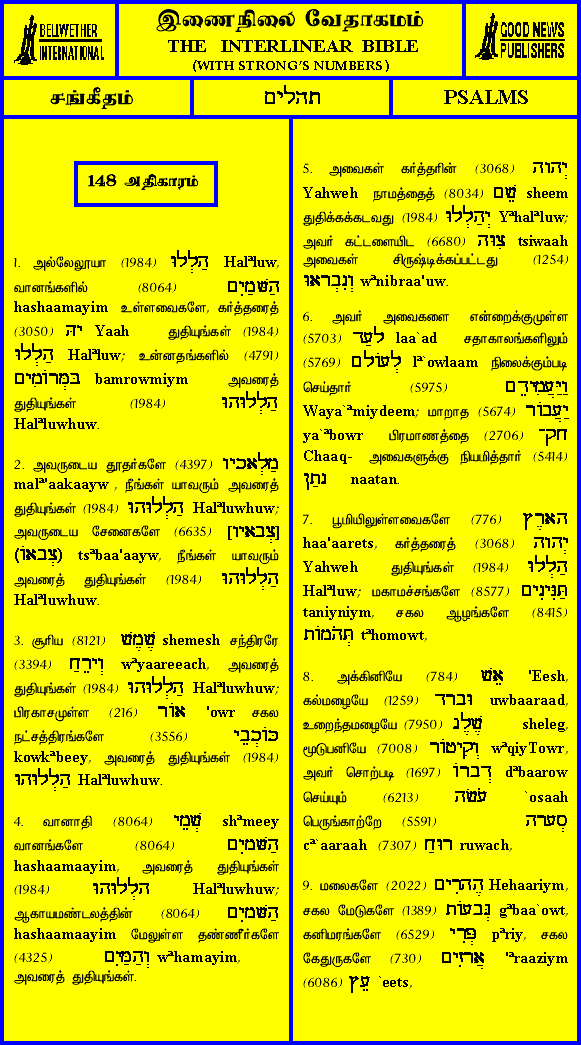 BELLWETHER
INTERNATIONAL
இணைநிலை வேதாகமம்
THE INTERLINEAR BIBLE
(WITH STRONG'S NUMBERS)
GOOD NEWS
PUBLISHERS
சங்கீதம்
תהלים
PSALMS
148 அதிகாரம்
1. அல்லேலூயா (1984) הַלְלוּ Halᵃluw,
வானங்களில் (8064) הַשָּׁמַיִם
hashaamayim உள்ளவைகளே, கர்த்தரைத்
(3050) יהּ Yaah துதியுங்கள் (1984)
הַלְלוּ Halᵃluw; உன்னதங்களில் (4791)
בּמְּרוֹמִים bamrowmiym அவரைத்
துதியுங்கள் (1984) הַלְלוּהוּ
Halᵃluwhuw.
2. அவருடைய தூதர்களே (4397) מַלְאכיו
malᵃ'aakaayw , நீங்கள் யாவரும் அவரைத்
துதியுங்கள் (1984) הַלְלוּהוּ Halᵃluwhuw;
அவருடைய சேனைகளே (6635) [צְבאיו]
(צְבאוֹ) tsᵃbaa'aayw, நீங்கள் யாவரும்
அவரைத் துதியுங்கள் (1984) הַלְלוּהוּ
Halᵃluwhuw.
3. சூரிய (8121) שֶׁמֶשׁ shemesh சந்திரரே
(3394) וְירֵחַ wᵃyaareeach, அவரைத்
துதியுங்கள் (1984) הַלְלוּהוּ Halᵃluwhuw;
பிரகாசமுள்ள (216) אוֹר 'owr சகல
நட்சத்திரங்களே (3556) כּוֹכְבֵי
kowkᵃbeey, அவரைத் துதியுங்கள் (1984)
הַלְלוּהוּ Halᵃluwhuw.
4. வானாதி (8064) שְׁמֵי shᵃmeey
வானங்களே (8064) הַשָּׁמַיִם
hashaamaayim, அவரைத் துதியுங்கள்
(1984) הלְלוּהוּ Halᵃluwhuw;
ஆகாயமண்டலத்தின் (8064) הַשָּׁמַיִם
hashaamaayim மேலுள்ள தண்ணீர்களே
(4325) וְהַמַּיִם wᵃhamayim,
அவரைத் துதியுங்கள்.
5. அவைகள் கர்த்தரின் (3068) יְהוה
Yahweh நாமத்தைத் (8034) שֵׁם sheem
துதிக்கக்கடவது (1984) יְהַלְלוּ Yᵃhalᵃluw;
அவர் கட்டளையிட (6680) צִוּה tsiwaah
அவைகள் சிருஷ்டிக்கப்பட்டது (1254)
וְנִבְראוּ wᵃnibraa'uw.
6. அவர் அவைகளை என்றைக்குமுள்ள
(5703) לעַד laa`ad சதாகாலங்களிலும்
(5769) לְעוֹלם lᵃ`owlaam நிலைக்கும்படி
செய்தார் (5975) וַיַּעֲמִידֵם
Waya`ᵃmiydeem; மாறாத (5674) יַעֲבוֹר
ya`ᵃbowr பிரமாணத்தை (2706) חק־
Chaaq- அவைகளுக்கு நியமித்தார் (5414)
נתַן naatan.
7. பூமியிலுள்ளவைகளே (776) האָרֶץ
haa'aarets, கர்த்தரைத் (3068) יְהוה
Yahweh துதியுங்கள் (1984) הַלְלוּ
Halᵃluw; மகாமச்சங்களே (8577) תַּנִּינִים
taniyniym, சகல ஆழங்களே (8415)
תְּהֹמוֹת tᵃhomowt,
8. அக்கினியே (784) אֵשׁ 'Eesh,
கல்மழையே (1259) וּברד uwbaaraad,
உறைந்தமழையே (7950) שֶׁלֶג sheleg,
மூடுபனியே (7008) וְקִיטוֹר wᵃqiyTowr,
அவர் சொற்படி (1697) דְברוֹ dᵃbaarow
செய்யும் (6213) עֹשׂה `osaah
பெருங்காற்றே (5591) סְערה
cᵃ`aaraah (7307) רוּחַ ruwach,
9. மலைகளே (2022) הֶהרִים Hehaariym,
சகல மேடுகளே (1389) גְּבעוֹת gᵃbaa`owt,
கனிமரங்களே (6529) פְּרִי pᵃriy, சகல
கேதுருகளே (730) אֲרזִים 'ᵃraaziym
(6086) עֵץ `eets,